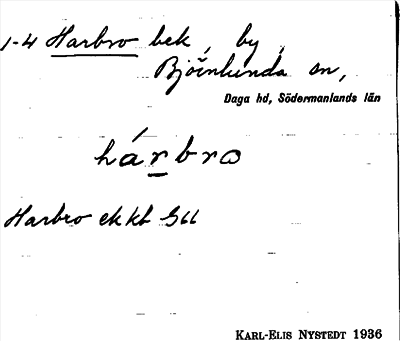 1-4 Harbro bek, by,
Björnlunda sn,
Daga hd, Södermanlands län
hárbro
Harbro ekkbl 5 G ll
KARL-ELIS NYSTEDT 1936